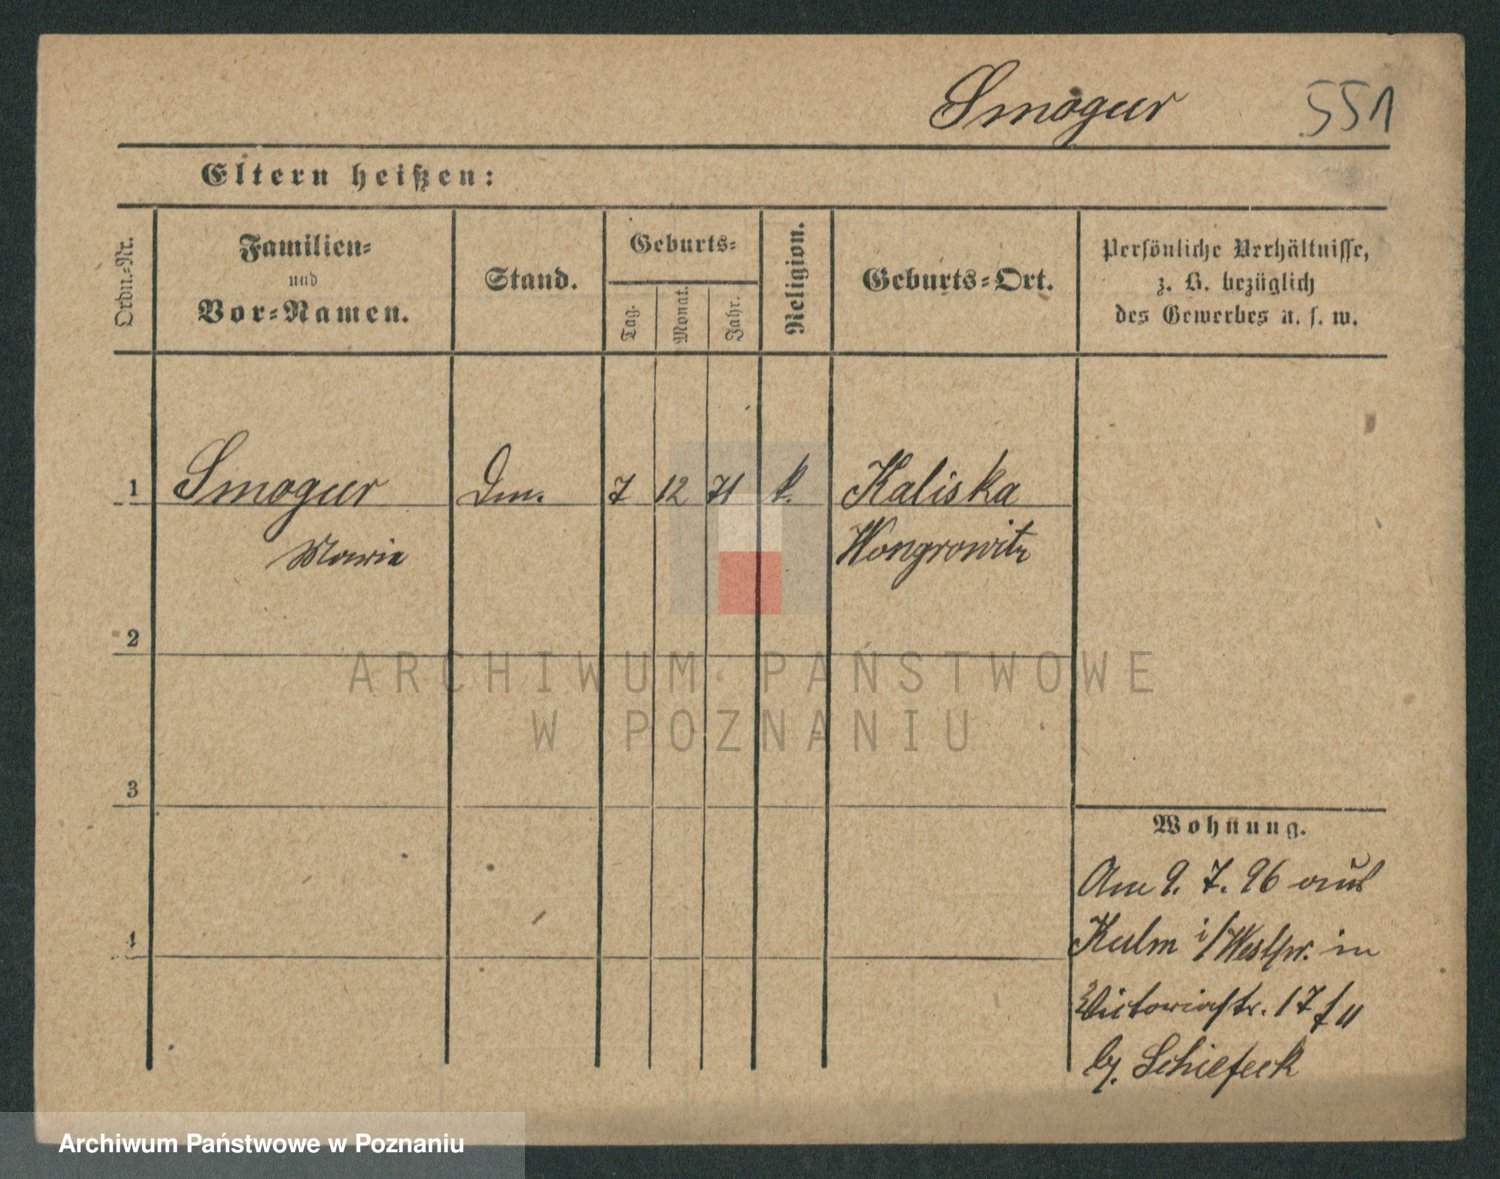 Smogur 551
Eltern heißen:
Ordn.-Nr.
Familien-
und
Vor-Namen.
Stand.
Geburts-
Tag.
Monat.
Jahr.
Religion.
Geburts-Ort.
Persönliche Verhältnisse,
z. B. bezüglich
des Gewerbes u. s. w.
1 Smogur Dm. 7 12 71 k. Kaliska
Marie Wongrowitz
2
3
4
Wohnung.
Am 9. 7. 96 aus
Kulm i/Westpr. in
Victoriastr. 17 II
bj. Schiefeck
ARCHIWUM PAŃSTWOWE
W POZNANIU
Archiwum Państwowe w Poznaniu